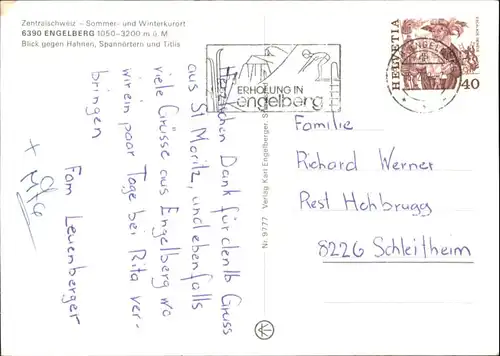 Zentralschweiz – Sommer- und Winterkurort
6390 ENGELBERG 1050–3200 m ü. M
Blick gegen Hahnen, Spannörtern und Titlis
ERHOLUNG IN
engelberg
HELVETIA
40
Herzlichen Dank für den lb Gruss
aus St Moritz, und ebenfalls
viele Grüsse aus Engelberg wo
wir ein paar Tage bei Rita ver-
bringen
Fam Leuenberger
+
Nr. 9777 Verlag Karl Engelberger, S
Familie
Richard Werner
Rest Hohbrugg
8226 Schleitheim